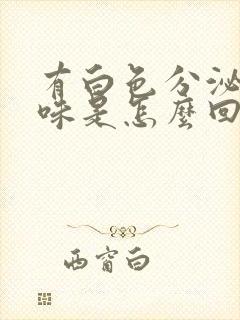 有白色分泌
味是怎麼回
西窗白